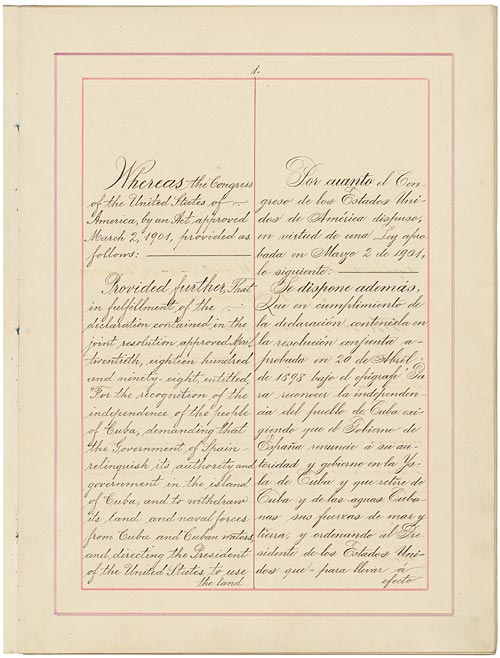 1.
Whereas the Congress
of the United States of
America, by an Act approved
March 2, 1901, provided as
follows:
Provided further, That
in fulfillment of the
declaration contained in the
joint resolution approved April
twentieth, eighteen hundred
and ninety-eight, entitled,
"For the recognition of the
independence of the people
of Cuba, demanding that
the Government of Spain
relinquish its authority and
government in the island
of Cuba, and to withdraw
its land and naval forces
from Cuba and Cuban waters
and directing the President
of the United States to use
the land
Por cuanto el Con-
greso de los Estados Uni-
dos de América dispuso,
en virtud de una Ley apro
bada en Marzo 2 de 1901,
lo siguiente:
Se dispone además,
Que en cumplimiento de
la declaración contenida en
la resolución conjunta a-
probada en 20 de Abril
de 1898 bajo el epígrafe "Pa
ra reconocer la independen-
cia del pueblo de Cuba exi-
giendo que el Gobierno de
España renuncie á su au-
toridad y gobierno en la Ys-
la de Cuba y que retire de
Cuba y de las aguas Cuba-
nas sus fuerzas de mar y
tierra, y ordenando al Pre-
sidente de los Estados Uni-
dos que - para llevar á
efecto